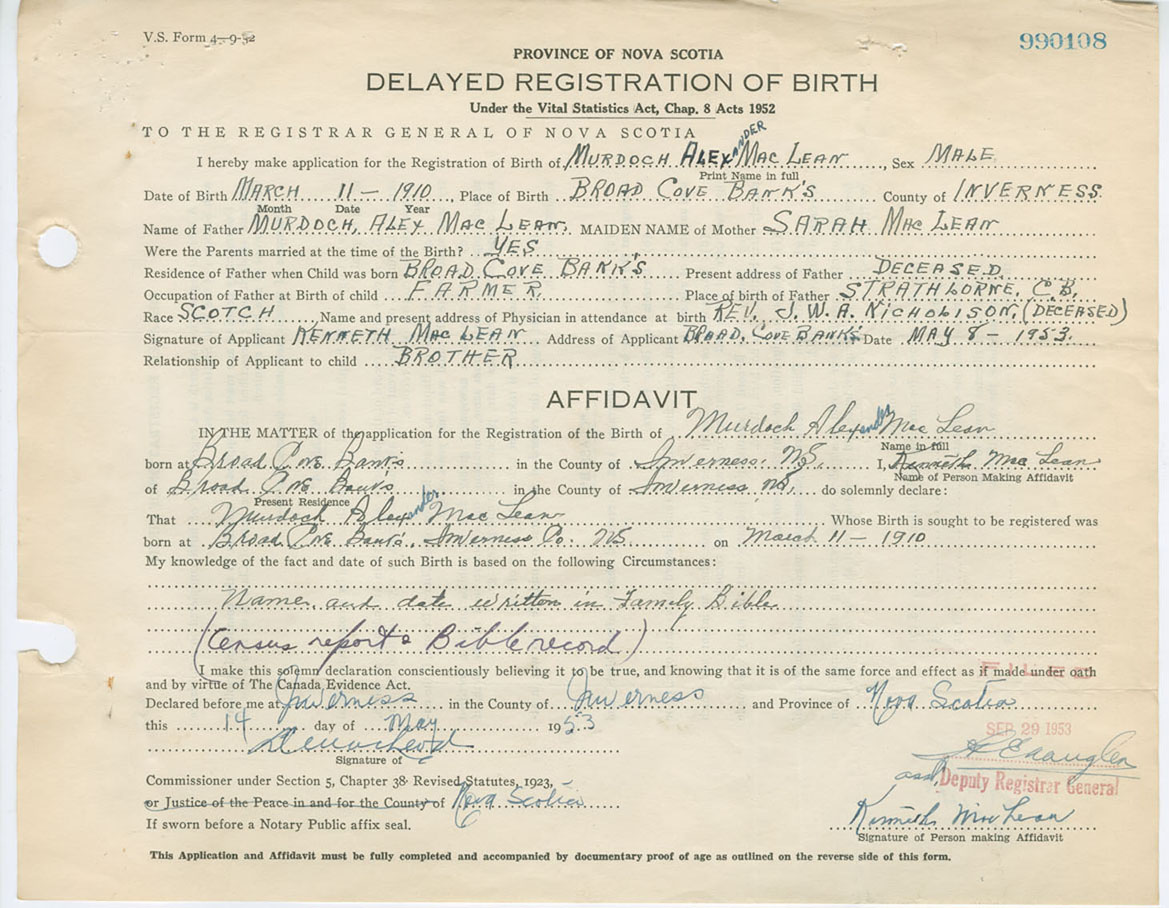 V.S. Form 4-9-52
990108
PROVINCE OF NOVA SCOTIA
DELAYED REGISTRATION OF BIRTH
Under the Vital Statistics Act, Chap. 8 Acts 1952
TO THE REGISTRAR GENERAL OF NOVA SCOTIA
I hereby make application for the Registration of Birth of MURDOCH ALEXANDER MAC LEAN, Sex MALE
Print Name in full
Date of Birth MARCH 11 - 1910, Place of Birth BROAD COVE BANK'S County of INVERNESS.
Month Date Year
Name of Father MURDOCH, ALEX MAC LEAN. MAIDEN NAME of Mother SARAH MAC LEAN
Were the Parents married at the time of the Birth? YES
Residence of Father when Child was born BROAD COVE BANK'S Present address of Father DECEASED
Occupation of Father at Birth of child FARMER. Place of birth of Father STRATHLORNE, C.B.
Race SCOTCH Name and present address of Physician in attendance at birth REV. J. W. A. NICHOLISON, (DECEASED)
Signature of Applicant KENNETH MAC LEAN Address of Applicant BROAD, COVE BANK'S Date MAY 8 - 1953.
Relationship of Applicant to child BROTHER
AFFIDAVIT
IN THE MATTER of the application for the Registration of the Birth of Murdoch Alexander Mac Lean
Name in full
born at Broad Cove Banks in the County of Inverness. N.S. I, Kenneth Mac Lean
Name of Person Making Affidavit
of Broad Cove Banks in the County of Inverness, N.S. do solemnly declare:
Present Residence
That Murdoch Alexander Mac Lean Whose Birth is sought to be registered was
born at Broad Cove Banks, Inverness Co. N.S. on March 11 - 1910
My knowledge of the fact and date of such Birth is based on the following Circumstances:
Name and date written in Family Bible
(Census report & Bible record)
I make this solemn declaration conscientiously believing it to be true, and knowing that it is of the same force and effect as if made under oath
and by virtue of The Canada Evidence Act.
Declared before me at Inverness in the County of Inverness and Province of Nova Scotia
this 14 day of May 1953
SEP 29 1953
Signature of
Deputy Registrar General
Commissioner under Section 5, Chapter 38 Revised Statutes, 1923,
or Justice of the Peace in and for the County of Nova Scotia
Kenneth Mac Lean
If sworn before a Notary Public affix seal.
Signature of Person making Affidavit
This Application and Affidavit must be fully completed and accompanied by documentary proof of age as outlined on the reverse side of this form.